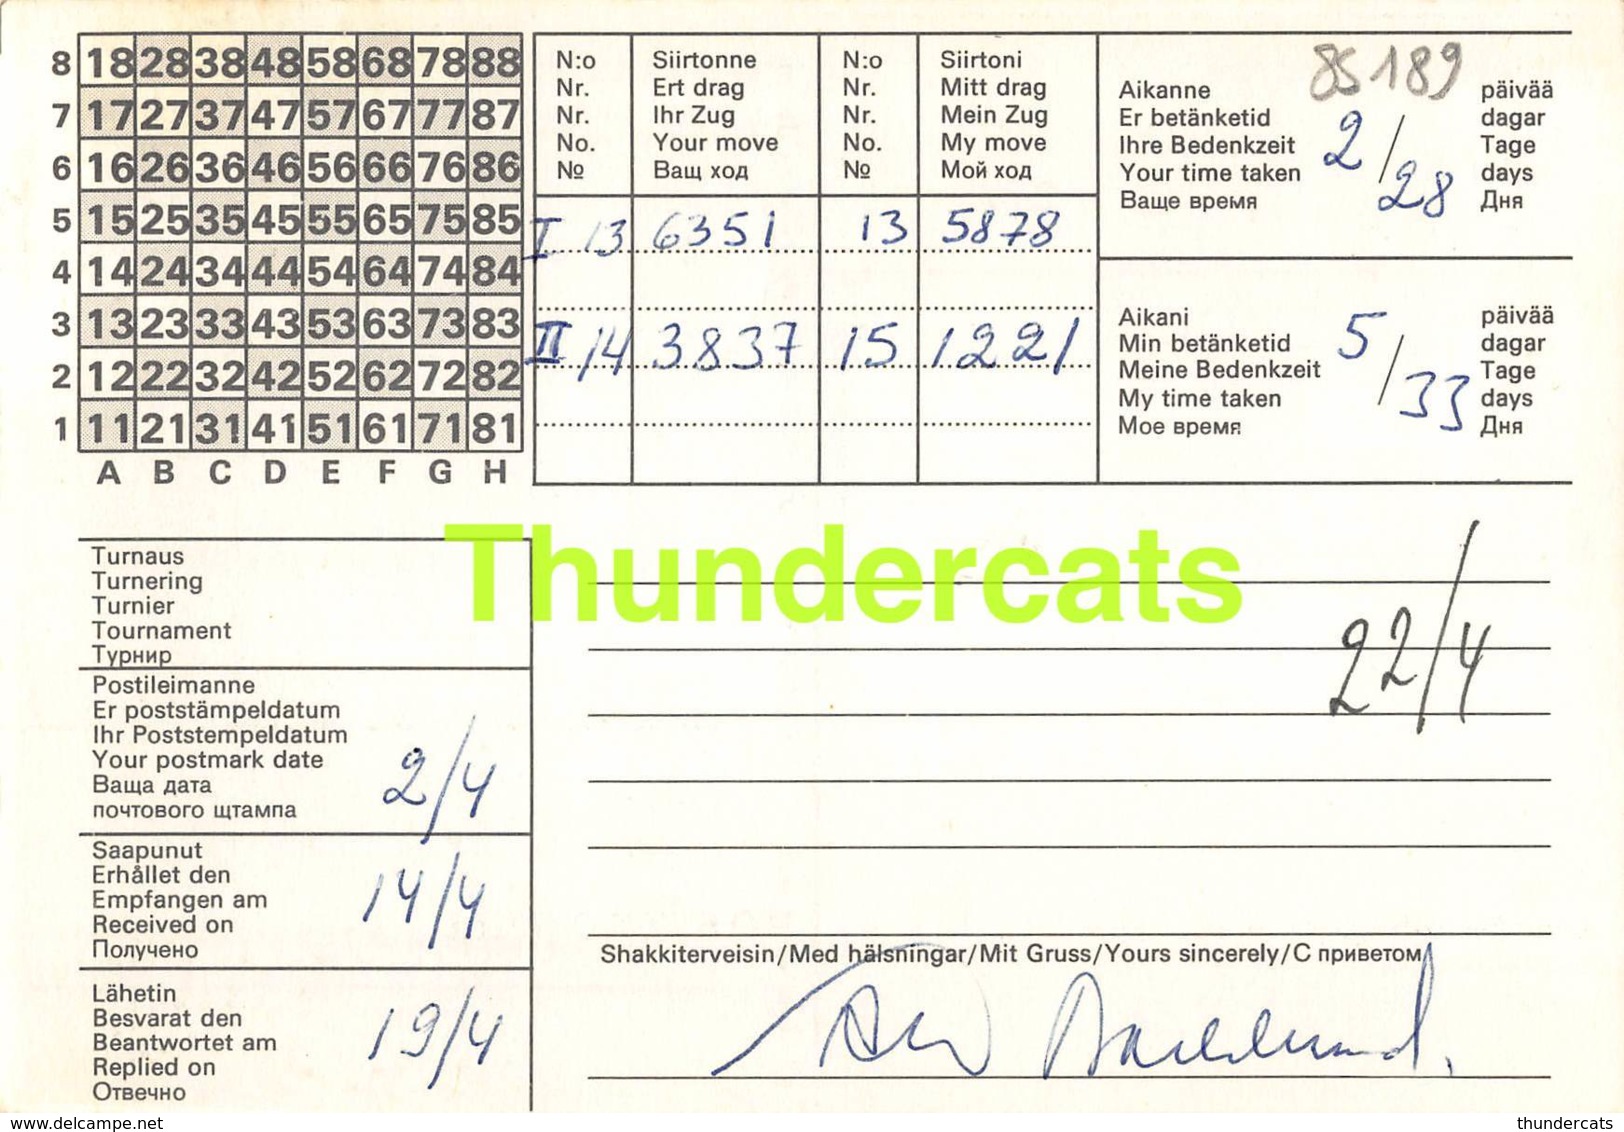 8 18 28 38 48 58 68 78 88
7 17 27 37 47 57 67 77 87
6 16 26 36 46 56 66 76 86
5 15 25 35 45 55 65 75 85
4 14 24 34 44 54 64 74 84
3 13 23 33 43 53 63 73 83
2 12 22 32 42 52 62 72 82
1 11 21 31 41 51 61 71 81
A B C D E F G H
N:o Siirtonne N:o Siirtoni
Nr. Ert drag Nr. Mitt drag
Nr. Ihr Zug Nr. Mein Zug
No. Your move No. My move
№ Ващ ход № Мой ход
I 13 6351 13 5878
II 14 3837 15 1221
85189
Aikanne päivää
Er betänketid dagar
Ihre Bedenkzeit Tage
Your time taken days
Ваще время Дня
2/28
Aikani päivää
Min betänketid dagar
Meine Bedenkzeit Tage
My time taken days
Мое время Дня
5/33
Thundercats
Turnaus
Turnering
Turnier
Tournament
Турнир
Postileimanne
Er poststämpeldatum
Ihr Poststempeldatum
Your postmark date
Ваща дата
почтового щтампа
2/4
Saapunut
Erhållet den
Empfangen am
Received on
Получено
14/4
Lähetin
Besvarat den
Beantwortet am
Replied on
Отвечно
19/4
22/4
Shakkiterveisin/Med hälsningar/Mit Gruss/Yours sincerely/С приветом
www.delcampe.net
thundercats